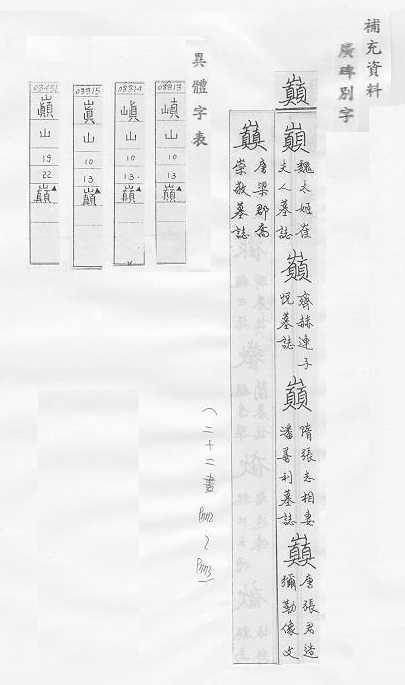 補充資料
廣碑別字
巔
巔
魏太姬崔
夫人墓誌
巔
齊赫連子
悅墓誌
巔
隋張志相妻
潘善利墓誌
巔
唐張君造
彌勒像文
巔
唐梁郡喬
崇敬墓誌
異體字表
08813
嵮
山
10
13
巔▲
08814
山
10
13
巔▲
08815
山
10
13
巔▲
巔
山
19
22
巔▲
(二十二畫